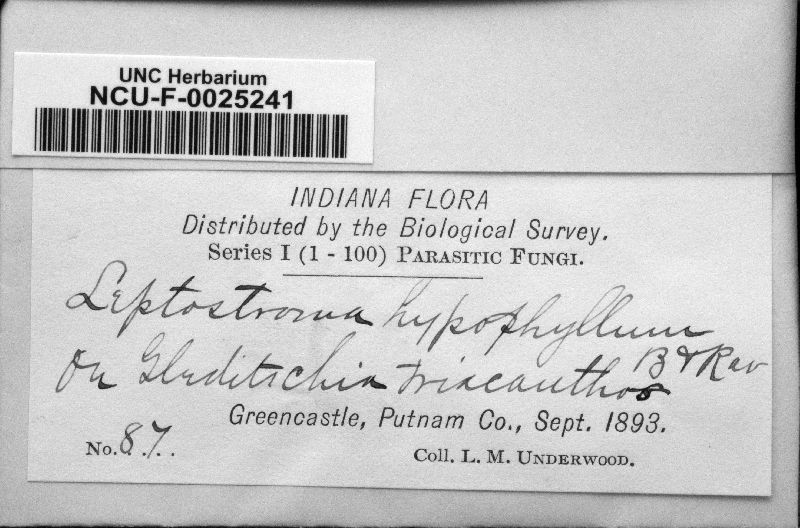 UNC Herbarium
NCU-F-0025241
INDIANA FLORA
Distributed by the Biological Survey.
Series I (1 - 100) PARASITIC FUNGI.
Leptostroma hypophyllum
B & Rav
On Gleditschia triacanthos
Greencastle, Putnam Co., Sept. 1893.
No. 87...
Coll. L. M. UNDERWOOD.